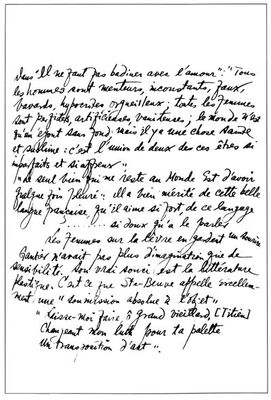 dans "Il ne faut pas badiner avec l'amour": "Tous
les hommes sont menteurs, inconstants, faux,
bavards, hypocrites orgueilleux; toutes les femmes
sont perfides, artificieuses, vaniteuses; le monde n'est
qu'un égout sans fond; mais il y a une chose sainte
et sublime: c'est l'union de deux de ces êtres si
imparfaits et si affreux"
"Le seul bien qui me reste au Monde Est d'avoir
quelque fois pleuré": il a bien mérité de cette belle
langue française qu'il aime si fort, de ce langage
......... si doux qu'à le parler
les femmes sur la lèvre en gardent un sourire
Gautier n'avait pas plus d'imagination que de
sensibilité. Son vrai souci est la littérature
plastique. C'est ce que Ste-Beuve appelle excellem-
ment une "soumission absolue à l'objet"
"Laisse-moi faire, ô grand vieillard, [Titien]
Changeant mon luth pour ta palette
Une transposition d'art".